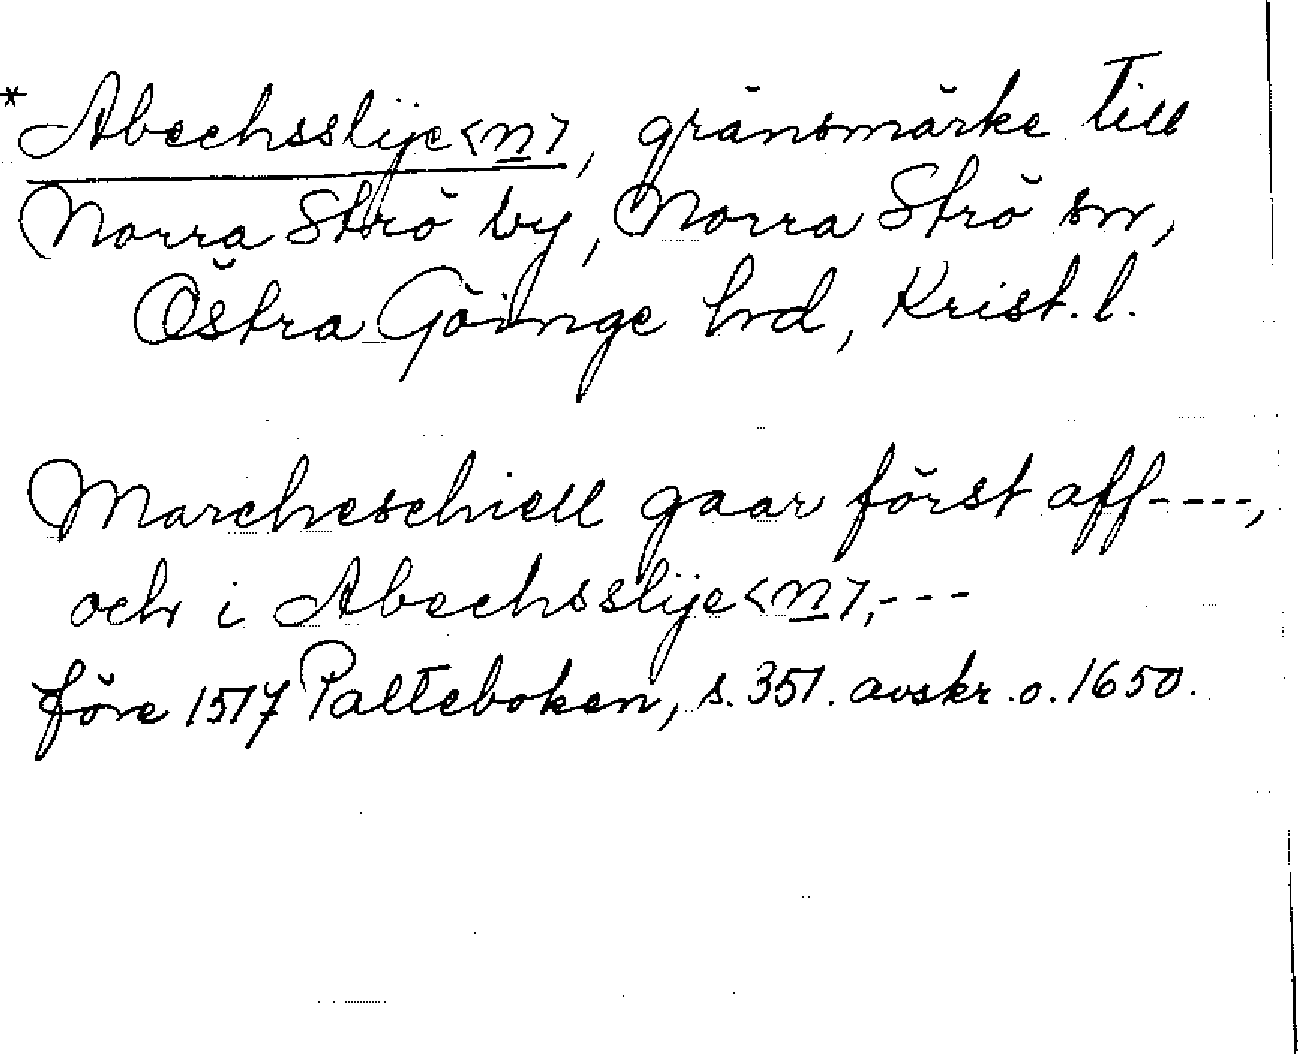 *Abechsslije<n>, gränsmärke till
Norra Strö by, Norra Strö sn,
Östra Göinge hrd, Krist. l.
Marcheschiell gaar först aff----,
och i Abechsslije<n>,---
före 1517 Palteboken, s. 351. avskr. o. 1650.